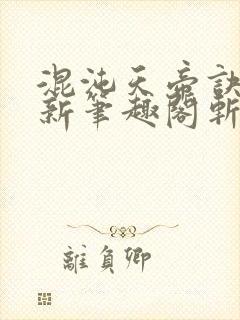 混沌天帝訣
新筆趣閣斬
離負卿